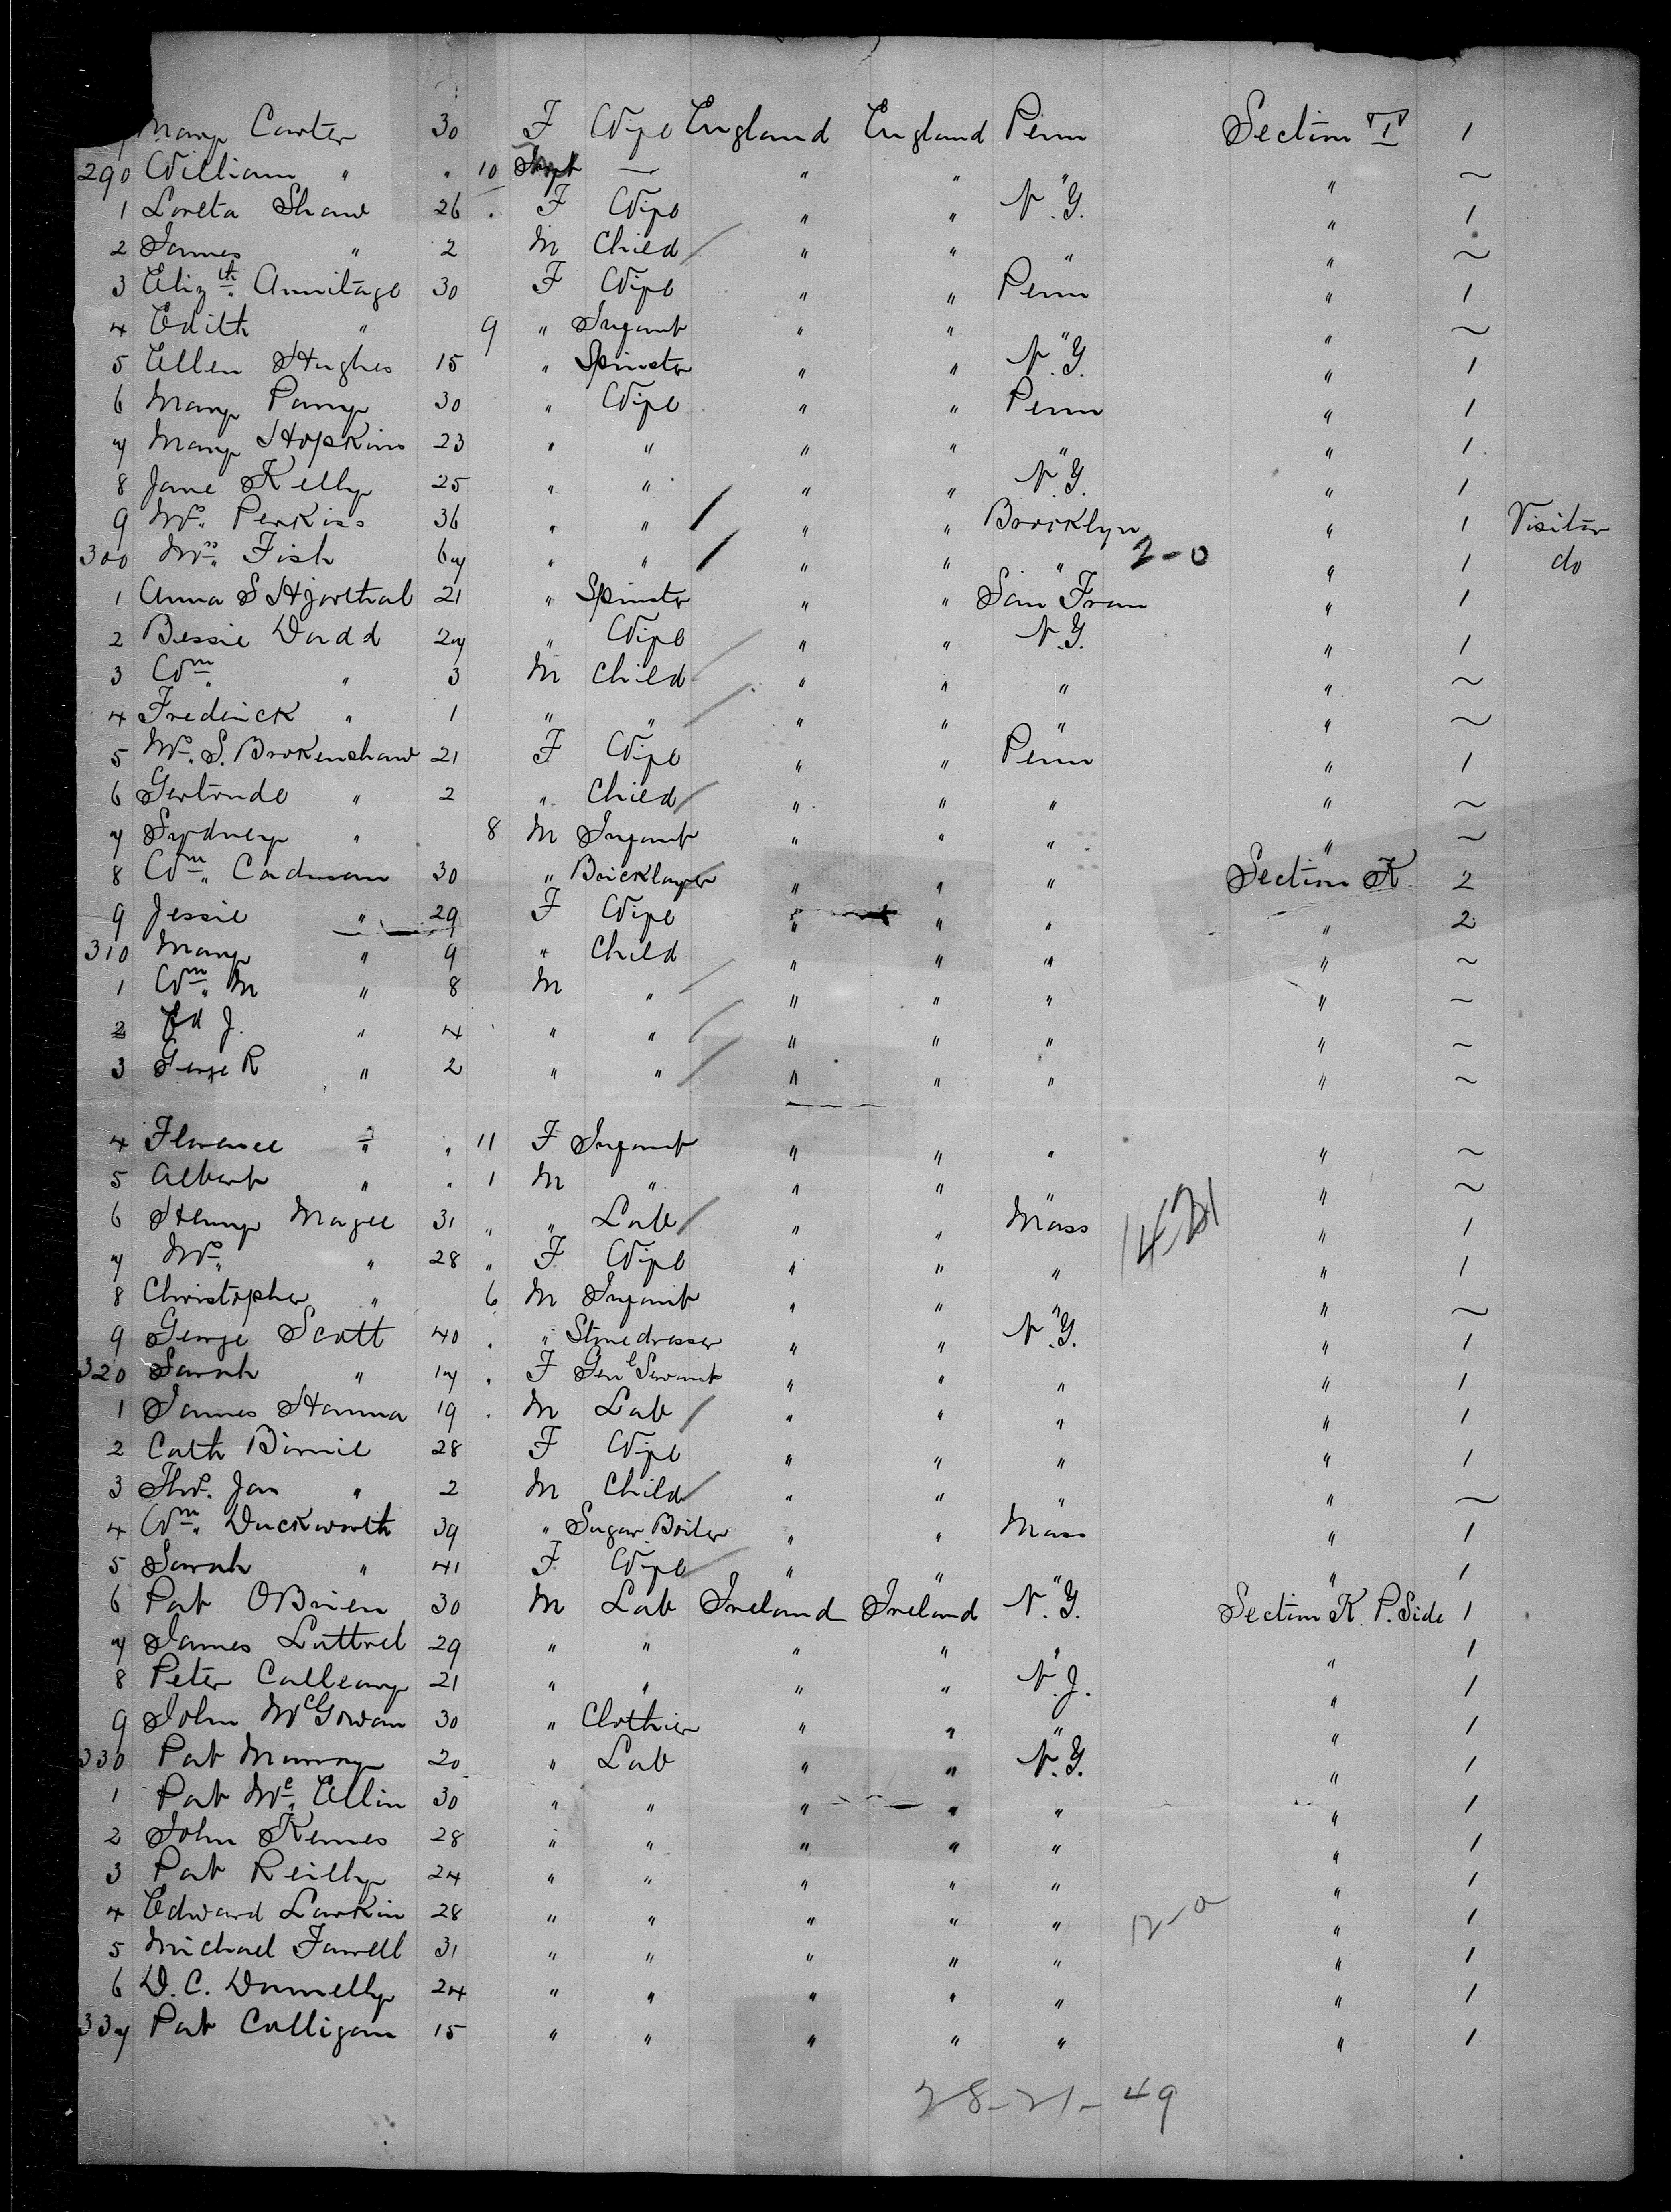 Mary Carter 30 F Wife England England Penn Section T 1
290 William " " 10 — " " " " ~
1 Loreta Shaw 26 . F Wife " " N.Y. " 1
2 James " 2 M Child " " " " ~
3 Eliz th Armitage 30 F Wife " " Penn " 1
4 Edith " 9 " Infant " " " " ~
5 Ellen Hughes 15 " Spinster " " N.Y. " 1
6 Mary Parry 30 " Wife " " Penn " 1
7 Mary Hopkins 23 " " " " " " 1
8 Jane Kelly 25 " " " " N.Y. " 1
9 Mrs. Perkiss 36 " " " " Brooklyn " 1 Visitor
300 Mrs. Fish 67 " " " " " 2-0 " 1 do
1 Anna S Hjorthal 21 " Spinster " " San Fran " 1
2 Bessie Dodd 27 " Wife " " N.Y. " 1
3 Wm. " 3 M Child " " " " ~
4 Frederick " 1 " " " " " " ~
5 Mrs. S. Brokenshaw 21 F Wife " " Penn " 1
6 Gertrude " 2 " Child " " " " ~
7 Sydney " 8 M Infant " " " " ~
8 Wm. Cadman 30 " Bricklayer " " " Section K 2
9 Jessie " 29 F Wife " " " " 2
310 Mary " 9 " Child " " " " ~
1 Wm. M " 8 M " " " " " ~
2 Ed J. " 4 " " " " " " ~
3 George R " 2 " " " " " " ~
4 Florence " " 11 F Infant " " " " ~
5 Albert " " 1 M " " " " " ~
6 Henry Magee 31 " " Lab " " Mass " 1
7 Mrs. " 28 " F Wife " " " " 1
8 Christopher " 6 M Infant " " " " ~
9 George Scott 40 . " Stonedresser " " N.Y. " 1
320 Sarah " 17 . F Gen l Servant " " " " 1
1 James Hanna 19 . M Lab " " " " 1
2 Cath Birnie 28 F Wife " " " " 1
3 Thos. Jas " 2 M Child " " " " ~
4 Wm. Duckworth 39 " Sugar Boiler " " Mass " 1
5 Sarah " 41 F Wife " " " " 1
6 Pat OBrien 30 M Lab Ireland Ireland N.Y. Section K. P. Side 1
7 James Luttrel 29 " " " " " " 1
8 Peter Calleary 21 " " " " N.J. " 1
9 John McGowan 30 " Clothier " " " " 1
330 Pat Murray 20 " Lab " " N.Y. " 1
1 Pat Mc Ellin 30 " " " " " " 1
2 John 28 " " " " " " 1
3 Pat Reilly 24 " " " " " " 1
4 Edward Larkin 28 " " " " " 12-0 " 1
5 Michael Farrell 31 " " " " " " 1
6 D. C. Donnelly 24 " " " " " " 1
337 Pat Colligan 15 " " " " " " 1
28-21-49